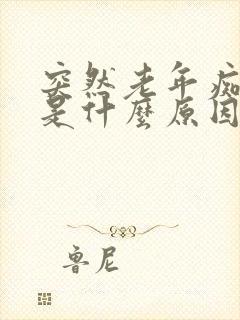 突然老年痴
是什麼原因
鲁尼